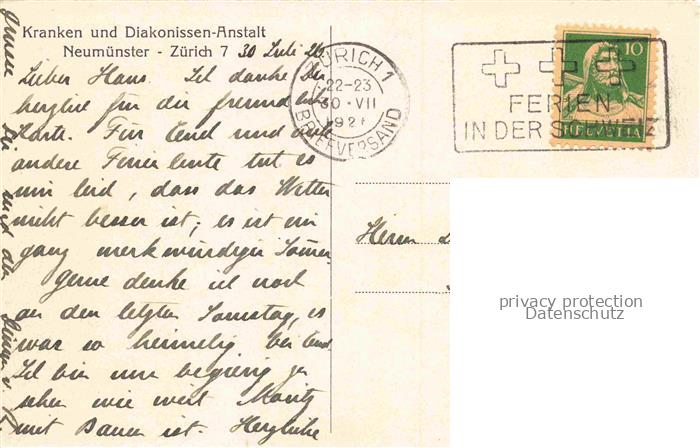 Kranken und Diakonissen-Anstalt
Neumünster - Zürich 7 30 Juli 26
Lieber Hans. Ich danke Dir
herzlich für die freundliche
Karte. Für Euch und alle
andere Ferienleute tut es
mir leid, dass das Wetter
nicht besser ist; es ist ein
ganz merkwürdiger Sommer
Gerne denke ich noch
an den letzten Samstag, es
war so heimelig bei Euch.
Ich bin nur begierig zu
sehen wie weit Moritz
mit Bauen ist. Herzliche
ZÜRICH 1
22-23
30·VII
192
BRIEFVERSAND
FERIEN
IN DER SCHWEIZ
10
HELVETIA
Herrn
privacy protection
Datenschutz